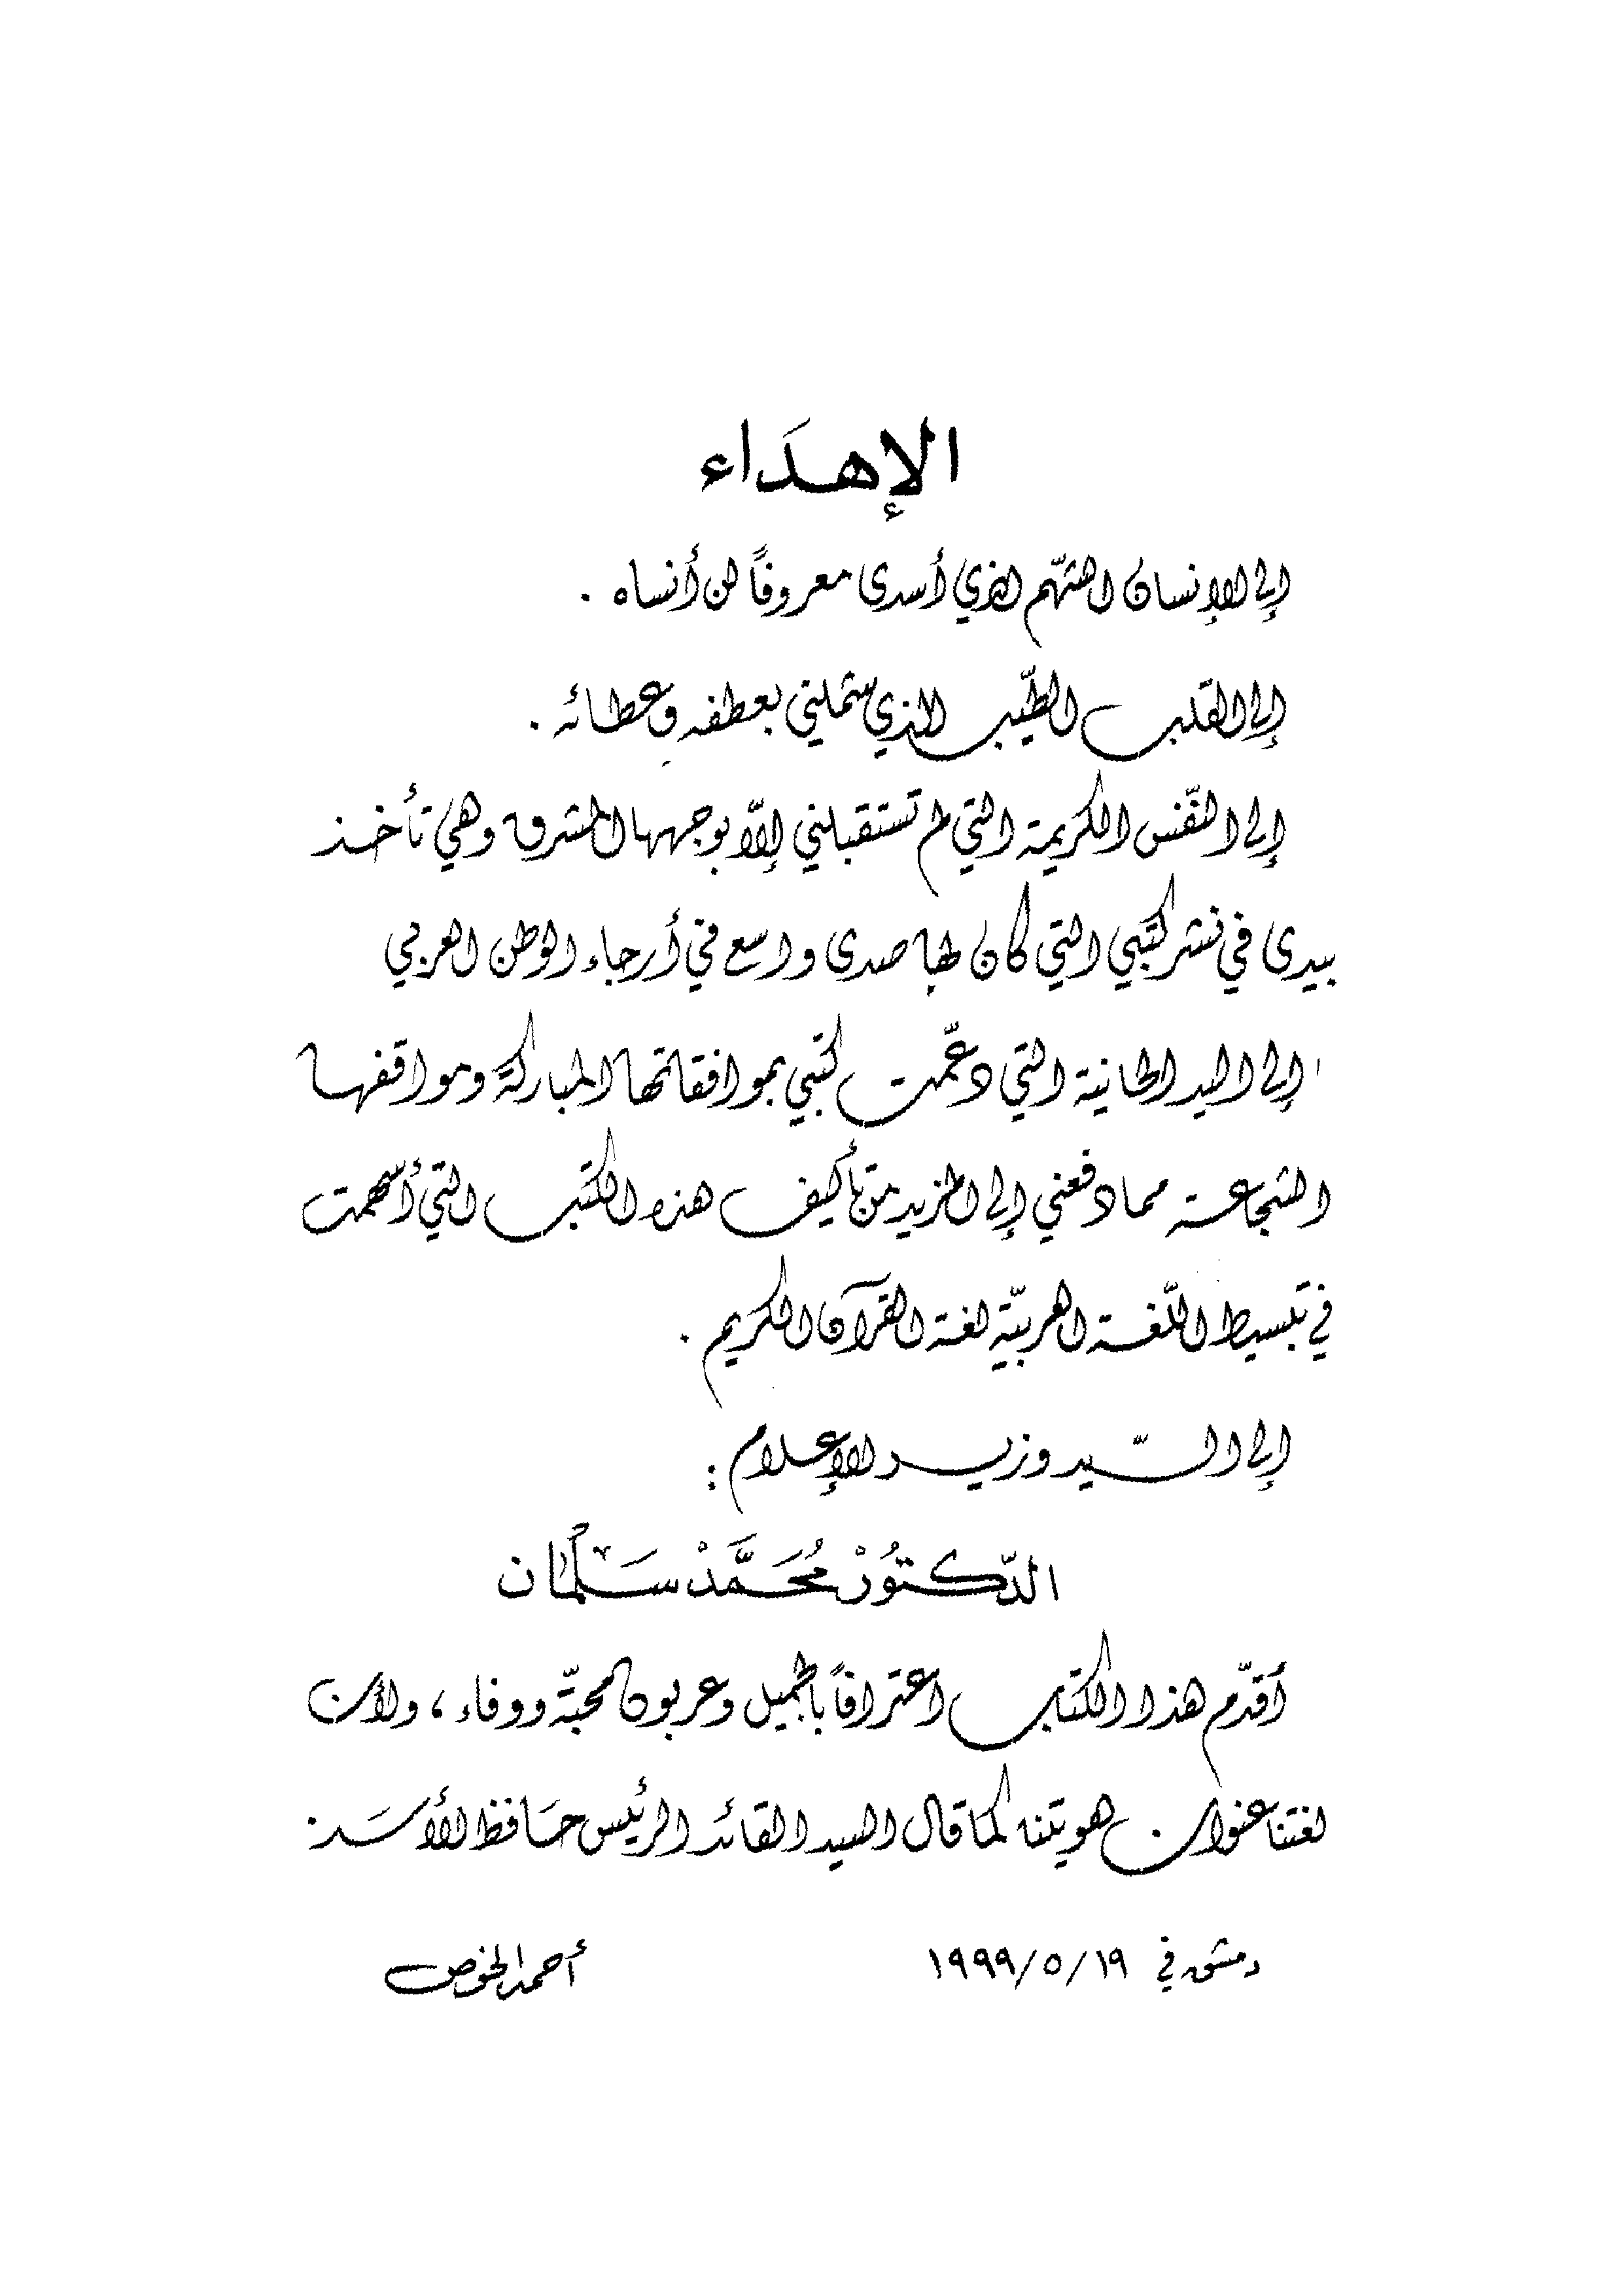 الإهدَاء
إلى الإنسان الشّهم الذي أسدى معروفاً لن أنساه .
إلى القلب الطّيب الذي شملني بعطفه وعطائه .
إلى النّفس الكريمة التي لم تستقبلني إلاّ بوجهها المشرق وهي تأخذ
بيدي في نشر كتبي التي كان لها صدى واسع في أرجاء الوطن العربي
إلى اليد الحانية التي دعّمت كتبي بموافقاتها المباركة ومواقفها
الشجاعة مما دفعني إلى المزيد من تأليف هذه الكتب التي أسهمت
في تبسيط اللّغة العربيّة لغة القرآن الكريم .
إلى السّيد وزير الإعلام :
الدّكتُورْ مُحَمَّدْ سَلمَان
أقدّم هذا الكتاب اعترافاً بالجميل وعربون محبّة ووفاء ، ولأن
لغتنا عنوان هويتنا كما قال السيد القائد الرئيس حَافظ الأسَد .
دمشق في ١٩/٥/١٩٩٩ أحمد الخوص